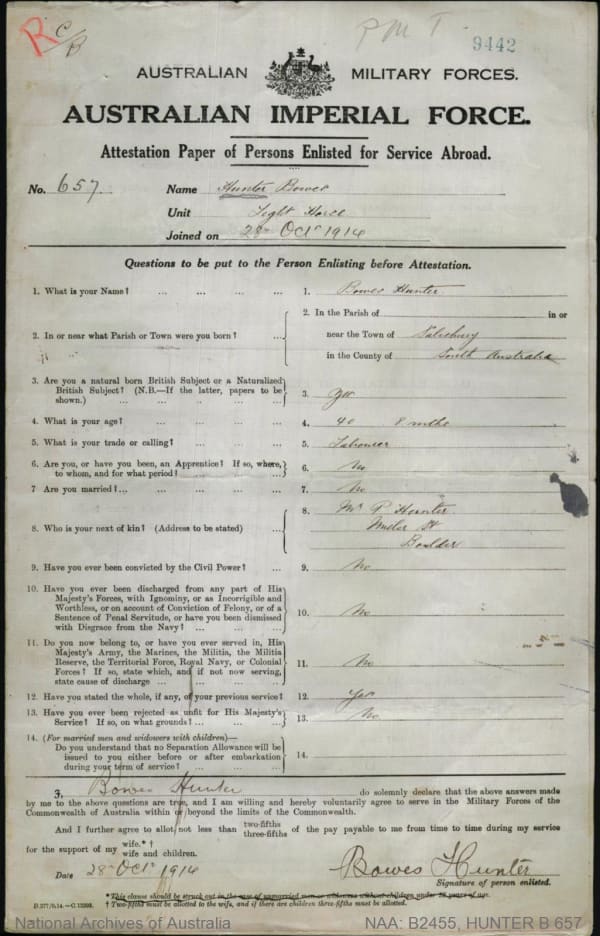 R C/B
P M T
9442
AUSTRALIAN MILITARY FORCES.
AUSTRALIAN IMPERIAL FORCE.
Attestation Paper of Persons Enlisted for Service Abroad.
No. 657. Name Hunter Bowes
Unit Light Horse
Joined on 28th Oct 1914
Questions to be put to the Person Enlisting before Attestation.
1. What is your Name? ... ... ... ... 1. Bowes Hunter
2. In or near what Parish or Town were you born? ... 2. In the Parish of in or
near the Town of Salisbury
in the County of South Australia
3. Are you a natural born British Subject or a Naturalized
British Subject? (N.B.—If the latter, papers to be
shown.) ... ... ... ... ... 3. Yes
4. What is your age? ... ... ... ... 4. 40 8 mths
5. What is your trade or calling? ... ... ... 5. Labourer
6. Are you, or have you been, an Apprentice? If so, where,
to whom, and for what period? 6. No
7 Are you married?... ... ... ... ... 7. No
8. Who is your next of kin? (Address to be stated) ... 8. Mr P. Hunter
St
Boulder
9. Have you ever been convicted by the Civil Power? ... 9. No
10. Have you ever been discharged from any part of His
Majesty's Forces, with Ignominy, or as Incorrigible and
Worthless, or on account of Conviction of Felony, or of a
Sentence of Penal Servitude, or have you been dismissed
with Disgrace from the Navy? ... ... ... 10. No
11. Do you now belong to, or have you ever served in, His
Majesty's Army, the Marines, the Militia, the Militia
Reserve, the Territorial Force, Royal Navy, or Colonial
Forces? If so, state which, and if not now serving,
state cause of discharge ... ... ... ... 11. No
12. Have you stated the whole, if any, of your previous service? 12. Yes
13. Have you ever been rejected as unfit for His Majesty's
Service? If so, on what grounds? ... ... ... 13. No
14. (For married men and widowers with children)—
Do you understand that no Separation Allowance will be
issued to you either before or after embarkation
during your term of service? ... ... ... 14.
I, Bowes Hunter do solemnly declare that the above answers made
by me to the above questions are true, and I am willing and hereby voluntarily agree to serve in the Military Forces of the
Commonwealth of Australia within or beyond the limits of the Commonwealth.
And I further agree to allot not less than two-fifths three-fifths of the pay payable to me from time to time during my service
for the support of my wife.* † wife and children.
Date 28 Oct 1914 Bowes Hunter
Signature of person enlisted.
*This clause should be struck out in the case of unmarried men or widowers without children under 18 years of age.
D.277/9.14.—C.12393. † Two-fifths must be allotted to the wife, and if there are children three-fifths must be allotted.
National Archives of Australia NAA: B2455, HUNTER B 657